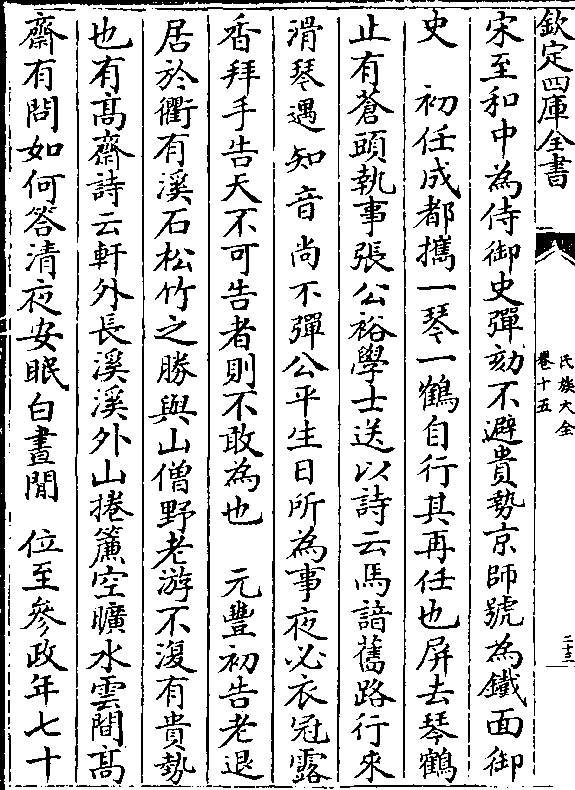 欽定四庫全書
氏族大全
卷十五
二十三
宋至和中為侍御史彈劾不避貴勢京師號為鐵面御
史　初任成都攜一琴一鶴自行其再任也屏去琴鶴
止有蒼頭執事張公裕學士送以詩云馬諳舊路行來
滑琴遇知音尚不彈公平生日所為事夜必衣冠露
香拜手告天不可告者則不敢為也　元豐初告老退
居於衢有溪石松竹之勝與山僧野老游不復有貴勢
也有髙齋詩云軒外長溪溪外山捲簾空曠水雲間髙
齋有問如何答清夜安眠白晝閒　位至參政年七十